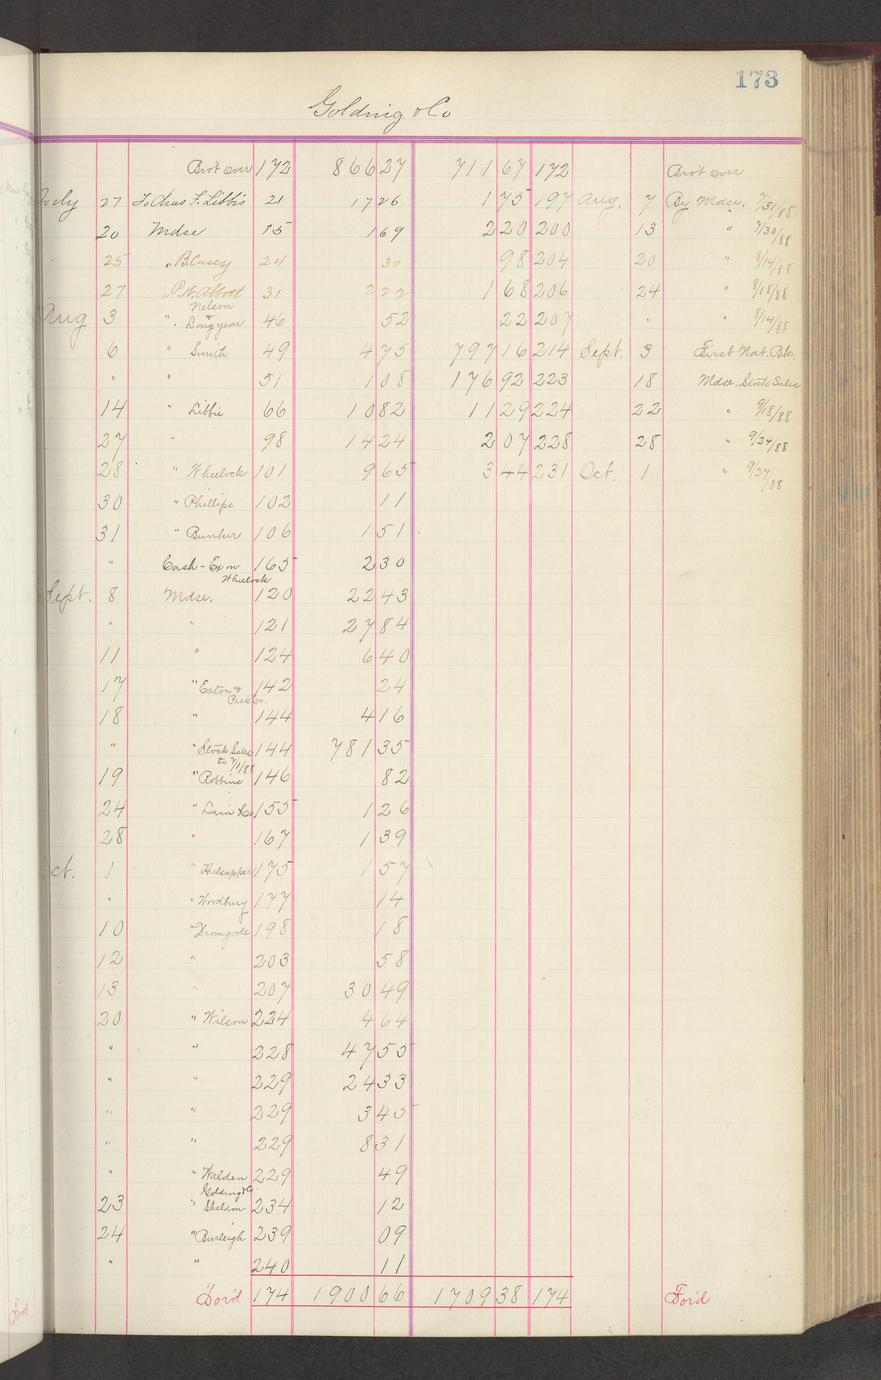 173
Golding & Co
Bro't over 172 866 27 711 67 172 Bro't over
July 27 To Chas F. Libbie 21 17 26 1 75 197 Aug. 7 By Mdse. 7/31/88
20 Mdse 15 1 69 2 20 200 13 " 7/30/88
25 " B. Casey 24 30 98 204 20 " 8/14/88
27 " P.W. Abbott 31 2 22 1 68 206 24 " 8/18/88
Aug 3 " Nelson & Dongyear 46 52 22 207 " " 8/14/88
6 " Smith 49 4 75 797 16 214 Sept. 3 First Nat. Bk.
" " 51 1 08 176 92 223 18 Mdse. Stock Sales
14 " Libbie 66 10 82 11 29 224 22 " 9/18/88
27 " 98 14 24 2 07 228 28 " 9/24/88
28 " Wheelock 101 9 65 3 44 231 Oct. 1 " 9/27/88
30 " Phillips 102 11
31 " Bunker 106 1 51
" Cash - Ex on Wheelock 165 2 30
Sept. 8 Mdse. 120 22 43
" " 121 27 84
11 " 124 6 40
17 " Eaton & Peck Co. 142 24
18 " 144 4 16
" " Stock Sales to 7/1/88 144 781 35
19 " Robbins 146 82
24 " Lain & Co 155 1 26
28 " 167 1 39
Oct. 1 " 175 1 57
" " Woodbury 177 14
10 " Dromgoole 198 18
12 " 203 58
13 " 207 30 49
20 " Wilson 224 4 64
" " 228 47 55
" " 229 24 33
" " 229 3 45
" " 229 8 31
" " Walden 229 49
23 " Golding & Co. Sheldon 234 12
24 " Burleigh 239 09
" " 240 11
For'd 174 1900 66 1709 38 174 For'd